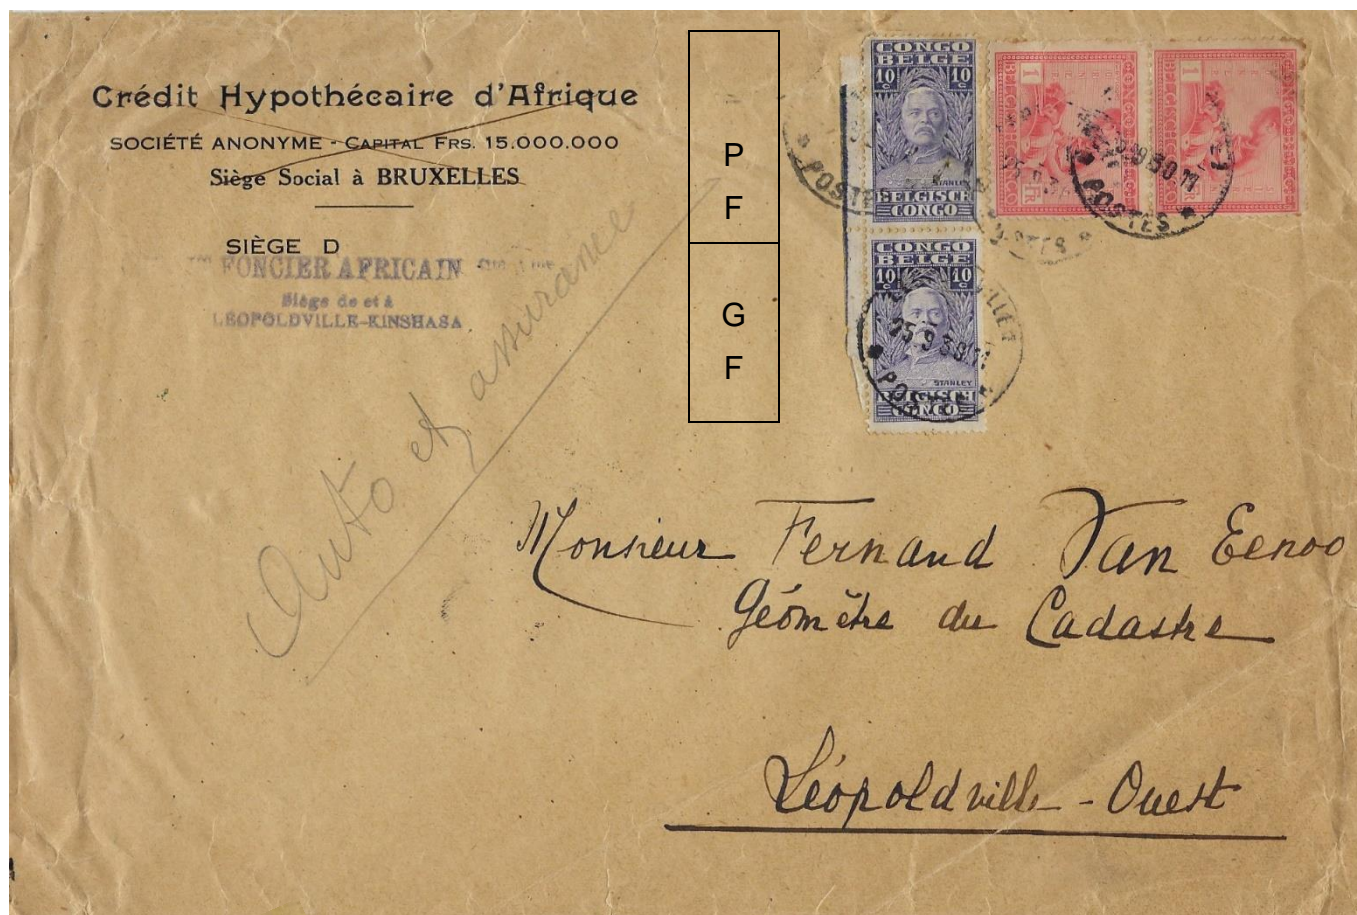 Crédit Hypothécaire d'Afrique
SOCIÉTÉ ANONYME - CAPITAL FRS. 15.000.000
Siège Social à BRUXELLES
SIÈGE D
FONCIER AFRICAIN
Siège de et à
LÉOPOLDVILLE-KINSHASA
Auto et assurance
P
F
G
F
CONGO
BELGE
10 10
C C
STANLEY
BELGISCH
CONGO
POSTES
CONGO
BELGE
10 10
C C
STANLEY
25-9 30 11
POSTES
1
1
FR
POSTES
9 30 11
POSTES
Monsieur Fernand Van Eenoo
Géomètre du Cadastre
Léopoldville - Ouest